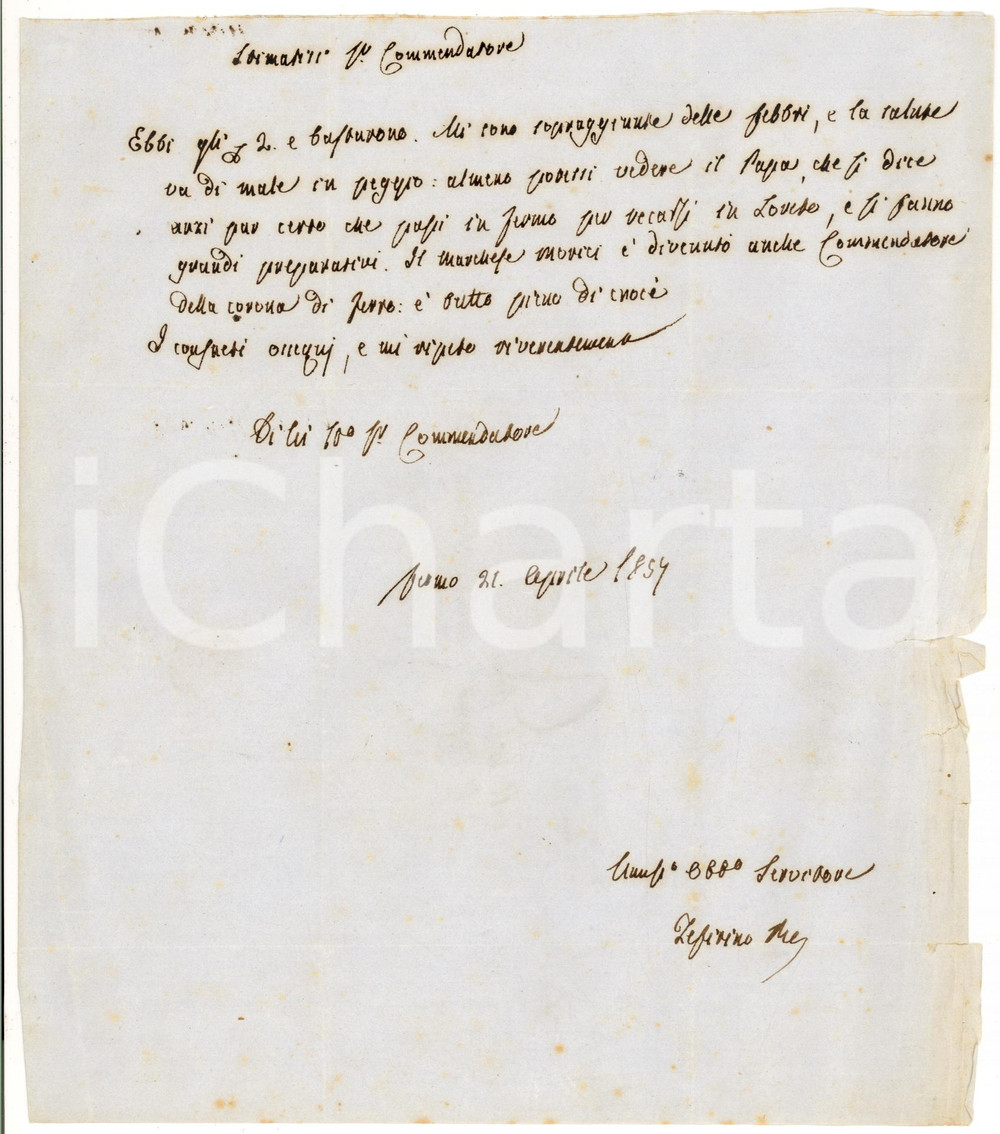 Stimatis.º Sr. Commendatore
Ebbi gli 2. e bastarono. Mi sono sopraggiunte delle febbri, e la salute
va di male in peggio: almeno potessi vedere il Papa, che si dice
anzi par certo che passi in Fermo per recarsi in Loreto, e si fanno
grandi preparativi. Il marchese Morici è divenuto anche Commendatore
della corona di ferro: è tutto pieno di croci
I consueti ossequj, e mi ripeto riverentemente
Di Lei Sr. Commendatore
Fermo 21. Aprile 1857
iCharta
Umilis.º Obb.º Servitore
Zefirino Re